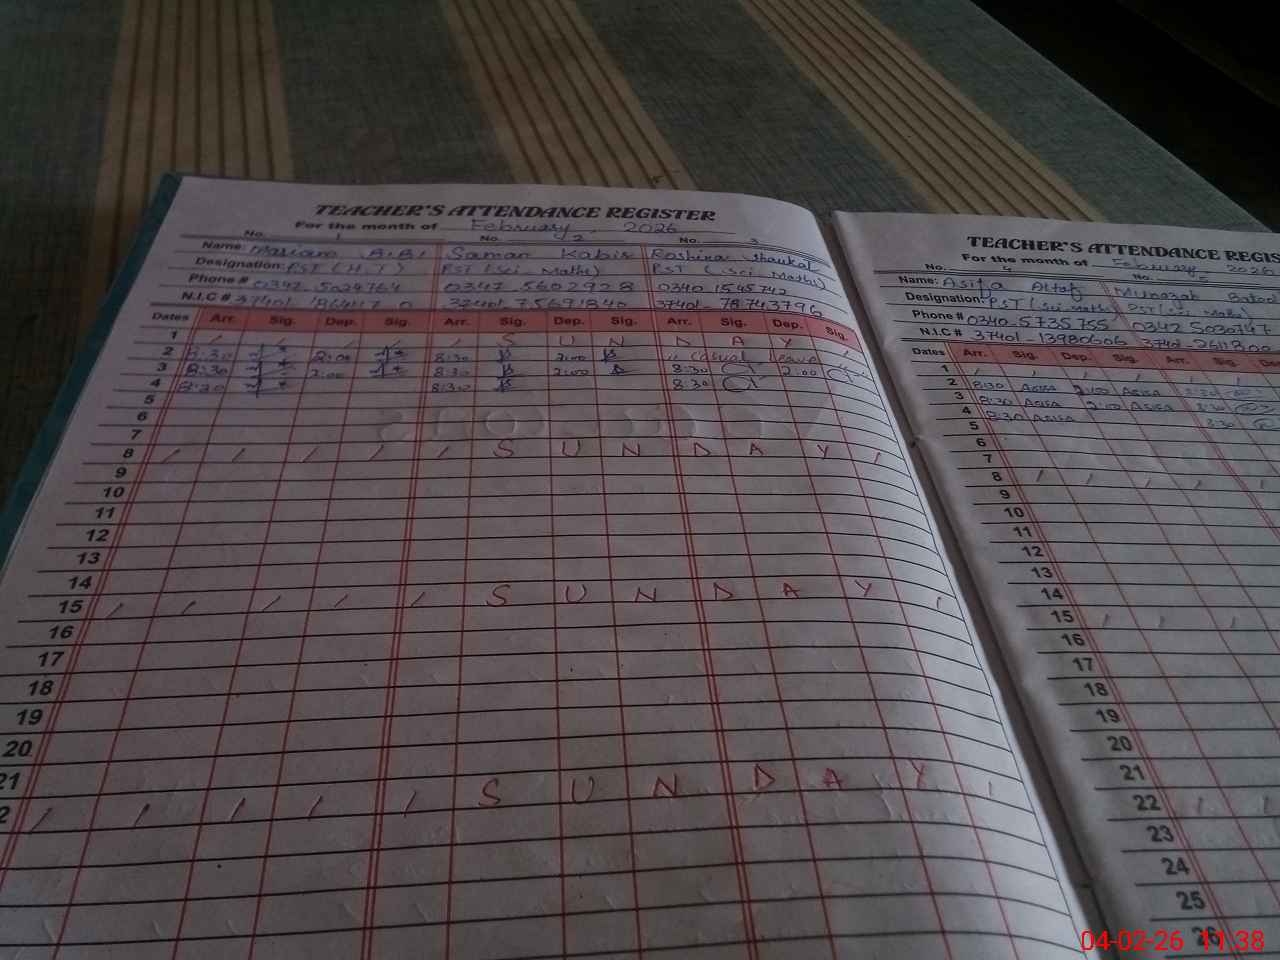 TEACHER'S ATTENDANCE REGISTER
For the month of February, 2026
No. 1 No. 2 No. 3
Name: Mariam Bibi Saman Kabir Roshina Shaukat
Designation: PST (H.T) PST (Sci. Maths) PST (Sci. Maths)
Phone # 0342 5024764 0347 5602928 0340 1545742
N.I.C # 37401 37401 75691840 37401- 78743796
Dates Arr. Sig. Dep. Sig. Arr. Sig. Dep. Sig. Arr. Sig. Dep. Sig.
1 S U N D A Y
2 8:30 2:00 8:30 2:00 Casual Leave
3 8:30 2:00 8:30 2:00 8:30 2:00
4 8:30 8:30 8:30
5
6
7
8 S U N D A Y
9
10
11
12
13
14
15 S U N D A Y
16
17
18
19
20
21
2 S U N D A Y
TEACHER'S ATTENDANCE REGIS
For the month of February 2026
No. 4 No. 5
Name: Asifa Altaf Munazah Batool
Designation: PST (Sci Math) PST (Sci Math)
Phone # 0340-5735755 0342 5030747
N.I.C # 37401-13980606
Dates Arr. Sig. Dep. Sig. Arr. Sig.
1
2 8:30 Asifa 2:00 Asifa 8:30
3 8:30 Asifa 2:00 Asifa 8:30
4 8:30 Asifa 8:30
5
6
7
8
9
10
11
12
13
14
15
16
17
18
19
20
21
22
23
24
25
26
04-02-26 11:38